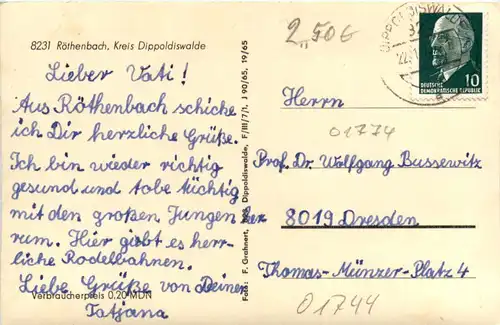 8231 Röthenbach, Kreis Dippoldiswalde
Lieber Vati!
Aus Röthenbach schicke
ich Dir herzliche Grüße.
Ich bin wieder richtig
gesund und tobe tüchtig
mit den großen Jungen her
rum. Hier giebt es herr-
liche Rodelbahnen.
Liebe Grüße von Deiner
Tatjana
Verbraucherpreis 0,20 MDN
Foto: F. Grahnert, Dippoldiswalde, F/III/7/1, J 90/65, 19/65
2,50€
DIPPOLDISWALDE
10
DEUTSCHE
DEMOKRATISCHE REPUBLIK
Herrn
01774
Prof. Dr. Wolfgang Bussewitz
8019 Dresden
Thomas-Münzer-Platz 4
01744